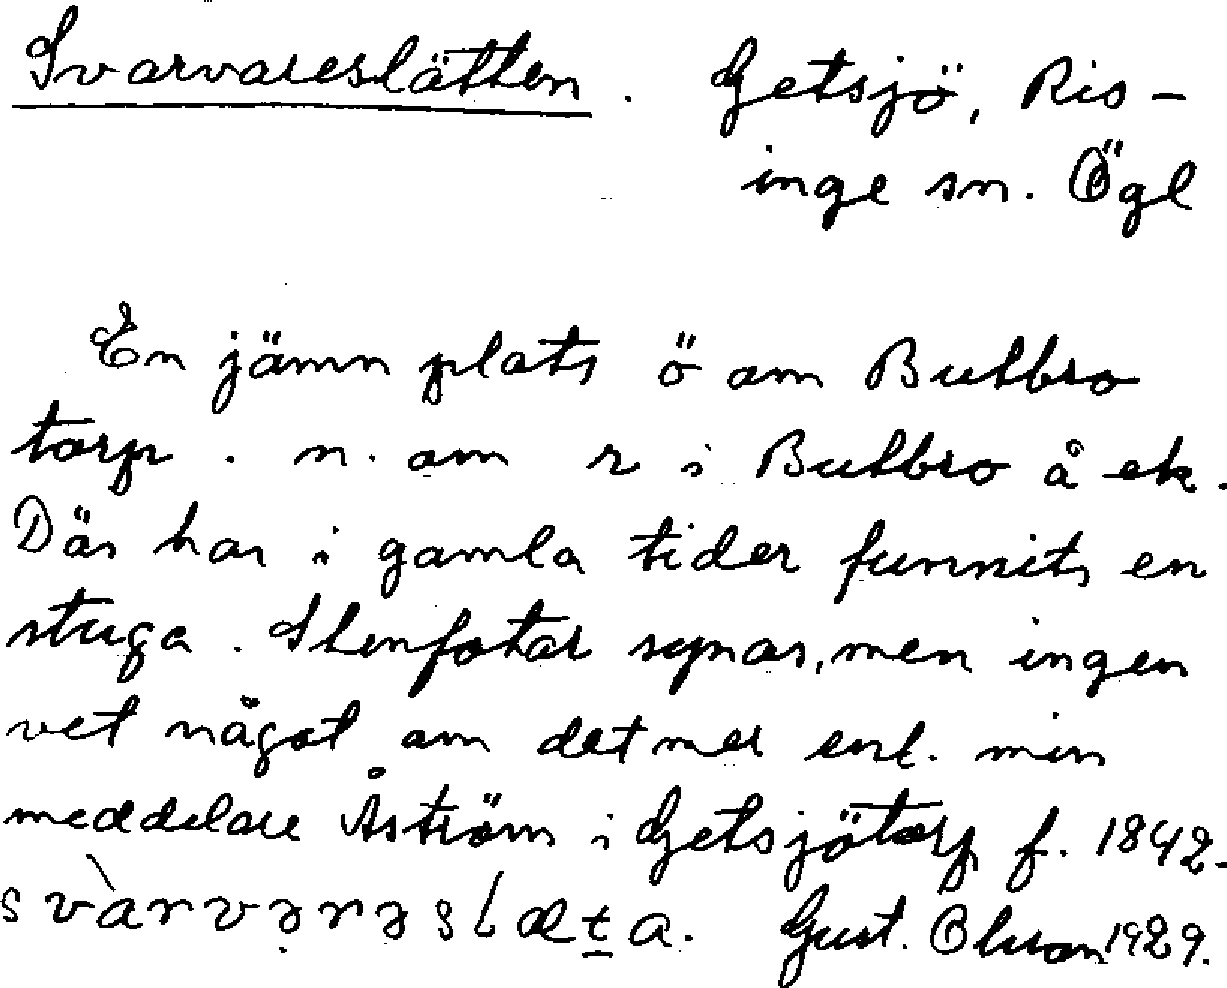 Svarvareslätten. Getsjö, Ris-
inge sn. Ögl
En jämn plats ö om Butbro
torp. n. om r i Butbro å ek.
Där har i gamla tider funnits en
stuga. Stenfotar synas, men ingen
vet något om det mer enl. min
meddelare Åström i Getsjötorp f. 1842.
Gust. Olsson 1929.